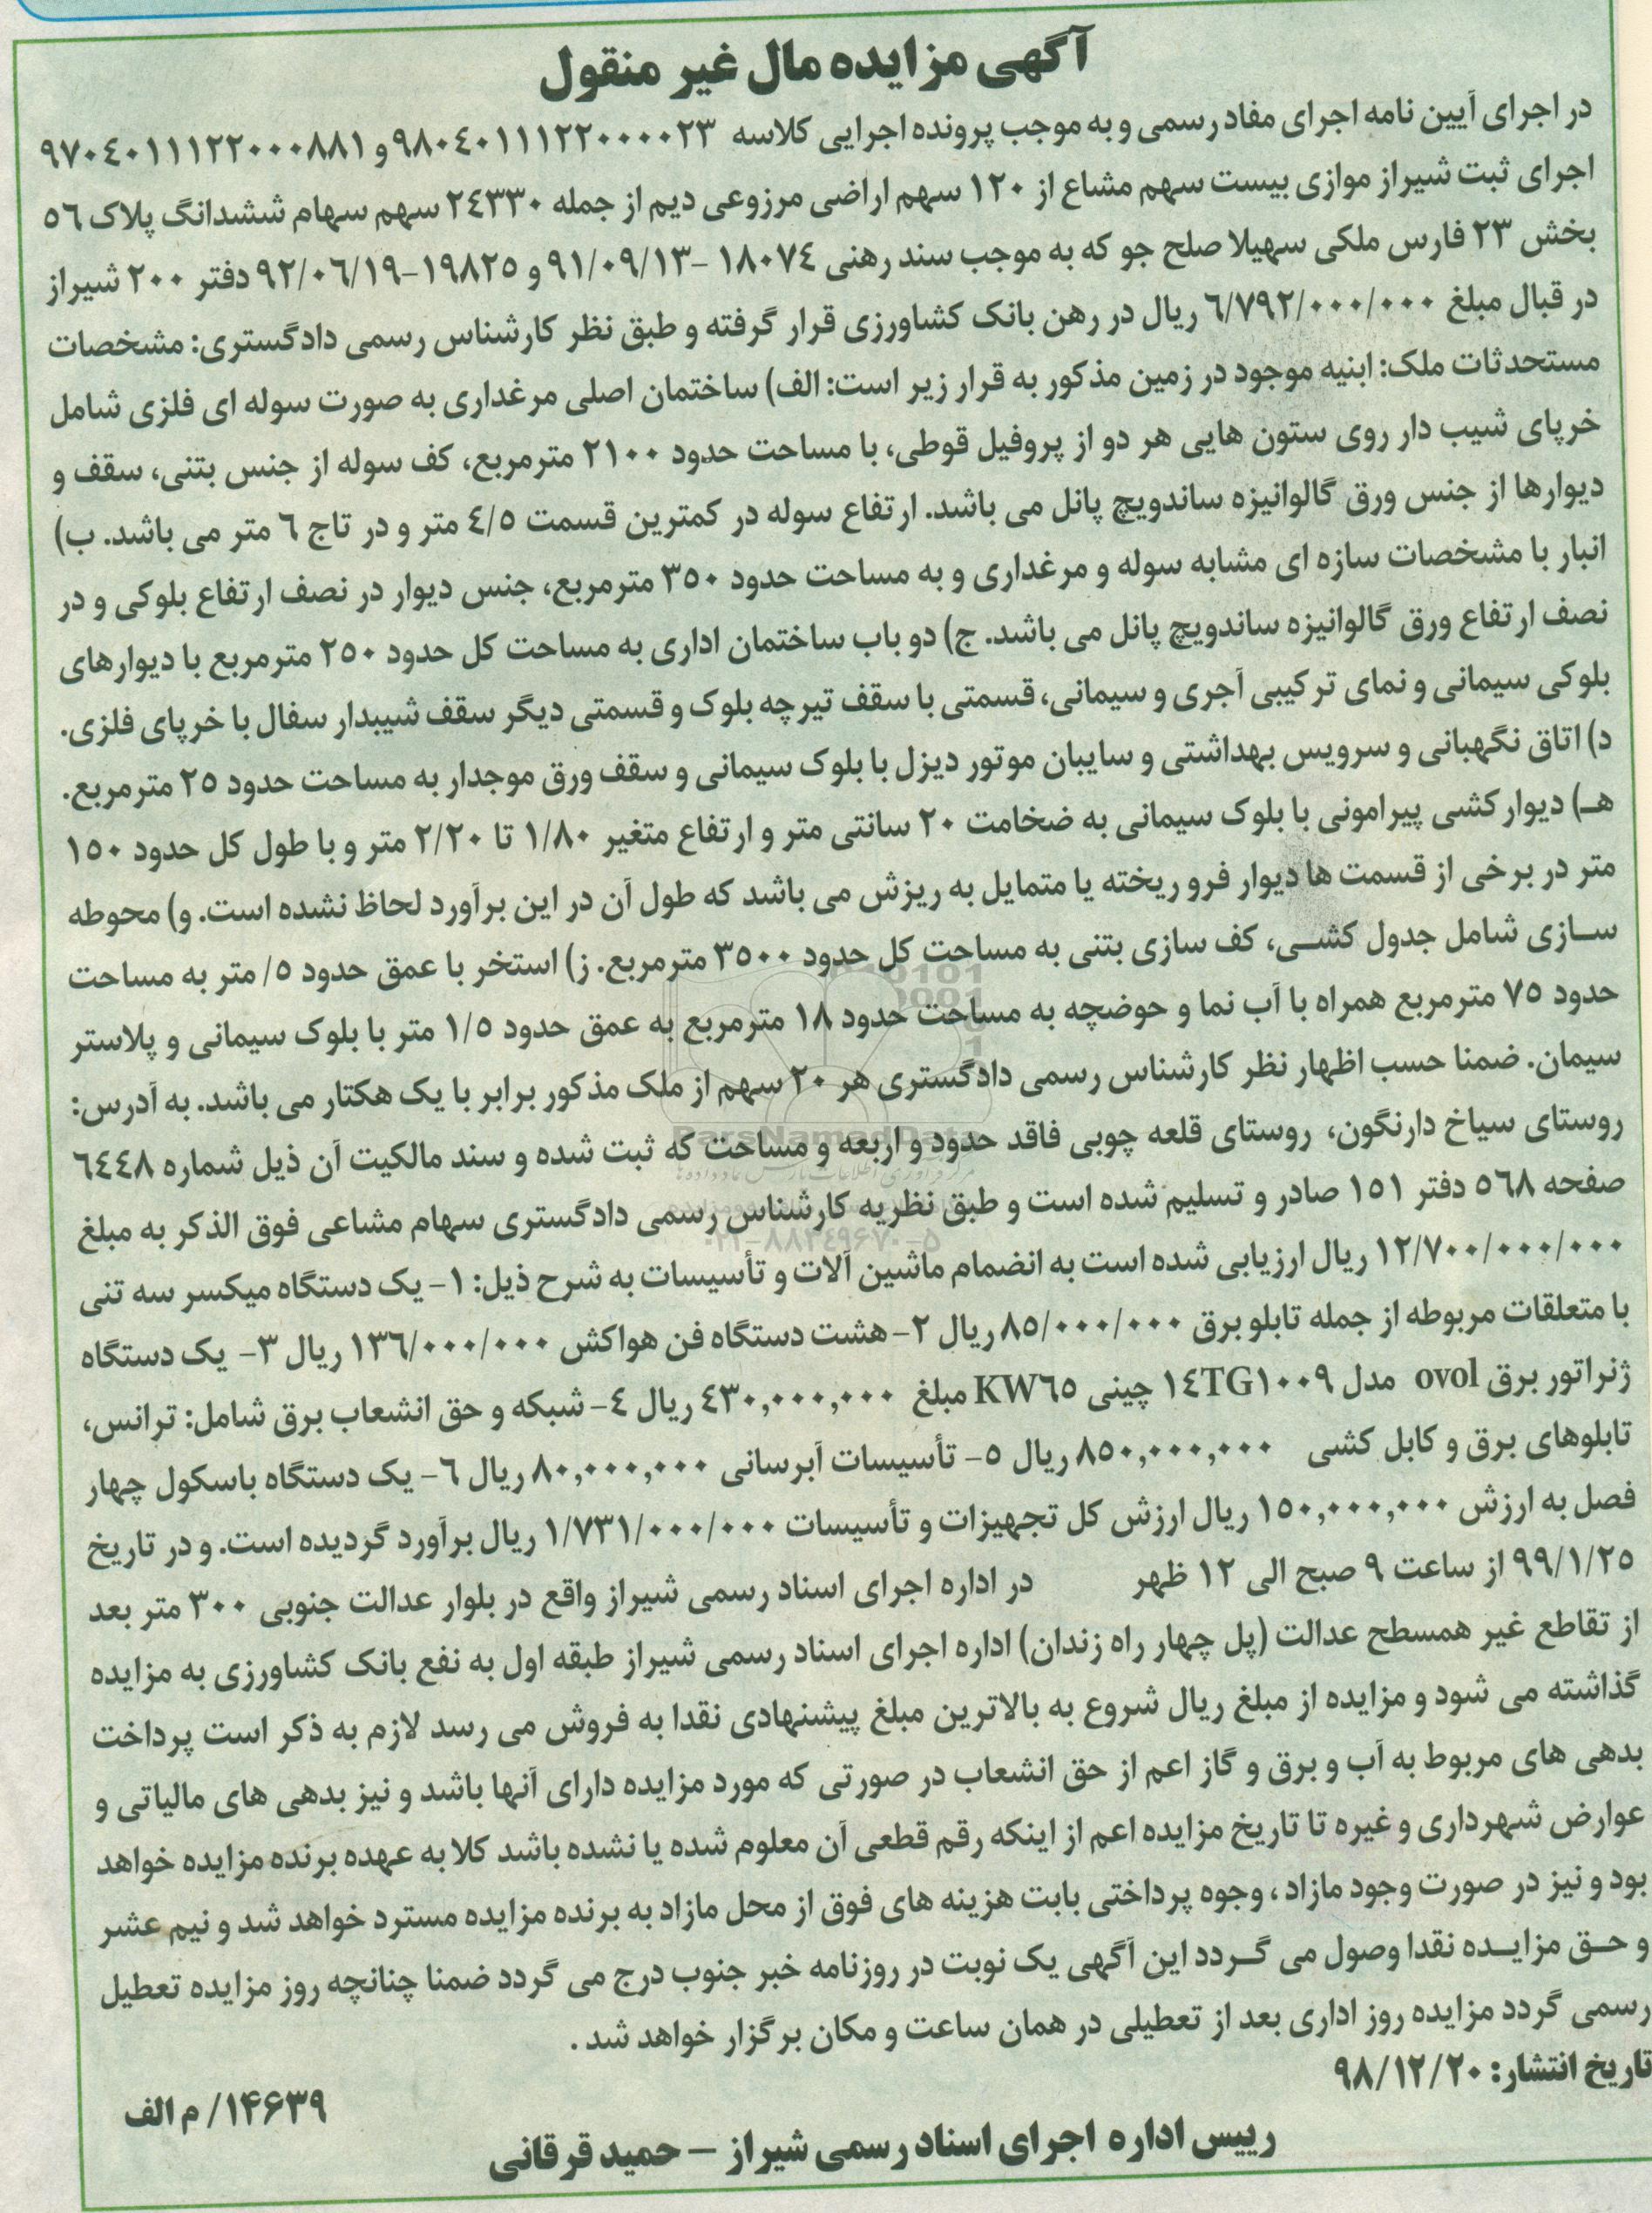 آگهی مزایده مال غیر منقول
در اجرای آیین نامه اجرای مفاد رسمی و به موجب پرونده اجرایی کلاسه ۹۸۰۴۰۱۱۱۲۲۰۰۰۰۲۳ و ۹۷۰۴۰۱۱۱۲۲۰۰۰۸۸۱
اجرای ثبت شیراز موازی بیست سهم مشاع از ۱۲۰ سهم اراضی مرزوعی دیم از جمله ۲٤۳۳۰ سهم سهام ششدانگ پلاک ٥٦
بخش ۲۳ فارس ملکی سهیلا صلح جو که به موجب سند رهنی ۱۸۰۷٤ -۹۱/۰۹/۱۳ و ۱۹۸۲٥-۹۲/۰٦/۱۹ دفتر ۲۰۰ شیراز
در قبال مبلغ ٦/۷۹۲/۰۰۰/۰۰۰ ریال در رهن بانک کشاورزی قرار گرفته و طبق نظر کارشناس رسمی دادگستری: مشخصات
مستحدثات ملک: ابنیه موجود در زمین مذکور به قرار زیر است: الف) ساختمان اصلی مرغداری به صورت سوله ای فلزی شامل
خرپای شیب دار روی ستون هایی هر دو از پروفیل قوطی، با مساحت حدود ۲۱۰۰ مترمربع، کف سوله از جنس بتنی، سقف و
دیوارها از جنس ورق گالوانیزه ساندویچ پانل می باشد. ارتفاع سوله در کمترین قسمت ٤/٥ متر و در تاج ٦ متر می باشد. ب)
انبار با مشخصات سازه ای مشابه سوله و مرغداری و به مساحت حدود ۳٥۰ مترمربع، جنس دیوار در نصف ارتفاع بلوکی و در
نصف ارتفاع ورق گالوانیزه ساندویچ پانل می باشد. ج) دو باب ساختمان اداری به مساحت کل حدود ۲٥۰ مترمربع با دیوارهای
بلوکی سیمانی و نمای ترکیبی آجری و سیمانی، قسمتی با سقف تیرچه بلوک و قسمتی دیگر سقف شیبدار سفال با خرپای فلزی.
د) اتاق نگهبانی و سرویس بهداشتی و سایبان موتور دیزل با بلوک سیمانی و سقف ورق موجدار به مساحت حدود ۲٥ مترمربع.
هـ) دیوارکشی پیرامونی با بلوک سیمانی به ضخامت ۲۰ سانتی متر و ارتفاع متغیر ۱/۸۰ تا ۲/۲۰ متر و با طول کل حدود ۱٥۰
متر در برخی از قسمت ها دیوار فرو ریخته یا متمایل به ریزش می باشد که طول آن در این برآورد لحاظ نشده است. و) محوطه
سازی شامل جدول کشی، کف سازی بتنی به مساحت کل حدود ۳٥۰۰ مترمربع. ز) استخر با عمق حدود ٥/ متر به مساحت
حدود ۷٥ مترمربع همراه با آب نما و حوضچه به مساحت حدود ۱۸ مترمربع به عمق حدود ۱/٥ متر با بلوک سیمانی و پلاستر
سیمان. ضمنا حسب اظهار نظر کارشناس رسمی دادگستری هر ۲۰ سهم از ملک مذکور برابر با یک هکتار می باشد. به آدرس:
روستای سیاخ دارنگون، روستای قلعه چوبی فاقد حدود و اربعه و مساحت که ثبت شده و سند مالکیت آن ذیل شماره ٦٤٤۸
صفحه ٥٦۸ دفتر ۱٥۱ صادر و تسلیم شده است و طبق نظریه کارشناس رسمی دادگستری سهام مشاعی فوق الذکر به مبلغ
۱۲/۷۰۰/۰۰۰/۰۰۰ ریال ارزیابی شده است به انضمام ماشین آلات و تأسیسات به شرح ذیل: ۱- یک دستگاه میکسر سه تنی
با متعلقات مربوطه از جمله تابلو برق ۸٥/۰۰۰/۰۰۰ ریال ۲- هشت دستگاه فن هواکش ۱۳٦/۰۰۰/۰۰۰ ریال ۳- یک دستگاه
ژنراتور برق ovol مدل ۱٤TG۱۰۰۹ چینی KW٦٥ مبلغ ٤۳۰,۰۰۰,۰۰۰ ریال ٤- شبکه و حق انشعاب برق شامل: ترانس،
تابلوهای برق و کابل کشی ۸٥۰,۰۰۰,۰۰۰ ریال ٥- تأسیسات آبرسانی ۸۰,۰۰۰,۰۰۰ ریال ٦- یک دستگاه باسکول چهار
فصل به ارزش ۱٥۰,۰۰۰,۰۰۰ ریال ارزش کل تجهیزات و تأسیسات ۱/۷۳۱/۰۰۰/۰۰۰ ریال برآورد گردیده است. و در تاریخ
۹۹/۱/۲٥ از ساعت ۹ صبح الی ۱۲ ظهر در اداره اجرای اسناد رسمی شیراز واقع در بلوار عدالت جنوبی ۳۰۰ متر بعد
از تقاطع غیر همسطح عدالت (پل چهار راه زندان) اداره اجرای اسناد رسمی شیراز طبقه اول به نفع بانک کشاورزی به مزایده
گذاشته می شود و مزایده از مبلغ ریال شروع به بالاترین مبلغ پیشنهادی نقدا به فروش می رسد لازم به ذکر است پرداخت
بدهی های مربوط به آب و برق و گاز اعم از حق انشعاب در صورتی که مورد مزایده دارای آنها باشد و نیز بدهی های مالیاتی و
عوارض شهرداری و غیره تا تاریخ مزایده اعم از اینکه رقم قطعی آن معلوم شده یا نشده باشد کلا به عهده برنده مزایده خواهد
بود و نیز در صورت وجود مازاد ، وجوه پرداختی بابت هزینه های فوق از محل مازاد به برنده مزایده مسترد خواهد شد و نیم عشر
و حق مزایده نقدا وصول می گردد این آگهی یک نوبت در روزنامه خبر جنوب درج می گردد ضمنا چنانچه روز مزایده تعطیل
رسمی گردد مزایده روز اداری بعد از تعطیلی در همان ساعت و مکان برگزار خواهد شد .
تاریخ انتشار: ۹۸/۱۲/۲۰
۱۴۶۳۹/ م الف
رییس اداره اجرای اسناد رسمی شیراز – حمید قرقانی
ParsNamadData
۰۲۱-۸۸۳٤۹٦۷۰-٥